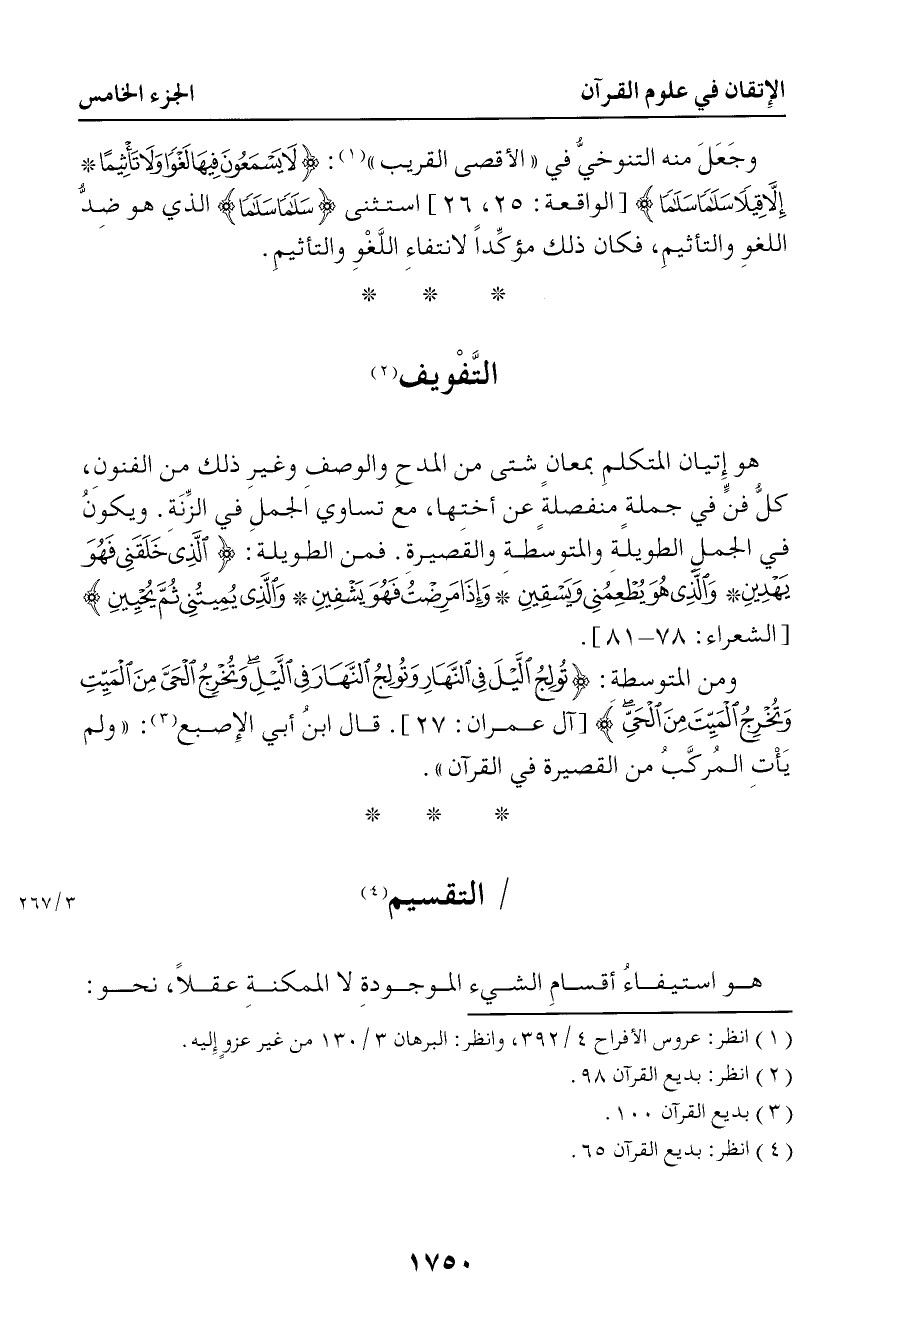 الإتقان في علوم القرآن الجزء الخامس
وجَعَلَ منه التنوخيُّ في «الأقصى القريب»(١): ﴿لَا يَسْمَعُونَ فِيهَا لَغْوًا وَلَا تَأْثِيمًا *
إِلَّا قِيلًا سَلَٰمًا سَلَٰمًا﴾ [الواقعة: ٢٥، ٢٦] استثنى ﴿سَلَٰمًا سَلَٰمًا﴾ الذي هو ضدُّ
اللغوِ والتأثيمِ، فكان ذلك مؤكِّداً لانتفاءِ اللَّغْوِ والتأثيمِ.
* * *
التَّفْويف(٢)
هو إتيان المتكلمِ بمعانٍ شتى من المدحِ والوصفِ وغيرِ ذلك من الفنونِ،
كلُّ فنٍّ في جملةٍ منفصلةٍ عن أختِها، مع تساوي الجملِ في الزِّنَةِ. ويكونُ
في الجملِ الطويلةِ والمتوسطةِ والقصيرة. فمن الطويلة: ﴿ٱلَّذِى خَلَقَنِى فَهُوَ
يَهْدِينِ * وَٱلَّذِى هُوَ يُطْعِمُنِى وَيَسْقِينِ * وَإِذَا مَرِضْتُ فَهُوَ يَشْفِينِ * وَٱلَّذِى يُمِيتُنِى ثُمَّ يُحْيِينِ﴾
[الشعراء: ٧٨–٨١].
ومن المتوسطة: ﴿تُولِجُ ٱلَّيْلَ فِى ٱلنَّهَارِ وَتُولِجُ ٱلنَّهَارَ فِى ٱلَّيْلِۖ وَتُخْرِجُ ٱلْحَىَّ مِنَ ٱلْمَيِّتِ
وَتُخْرِجُ ٱلْمَيِّتَ مِنَ ٱلْحَىِّۖ﴾ [آل عمران: ٢٧]. قال ابنُ أبي الإصبع(٣): «ولم
يَأْتِ المُركَّبُ من القصيرة في القرآن».
* * *
/ التقسيم(٤) ٢٦٧/٣
هو استيفاءُ أقسامِ الشيء الموجودةِ لا الممكنةِ عقلاً، نحو:
(١) انظر: عروس الأفراح ٣٩٢/٤، وانظر: البرهان ١٣٠/٣ من غير عزوٍ إليه.
(٢) انظر: بديع القرآن ٩٨.
(٣) بديع القرآن ١٠٠.
(٤) انظر: بديع القرآن ٦٥.
١٧٥٠